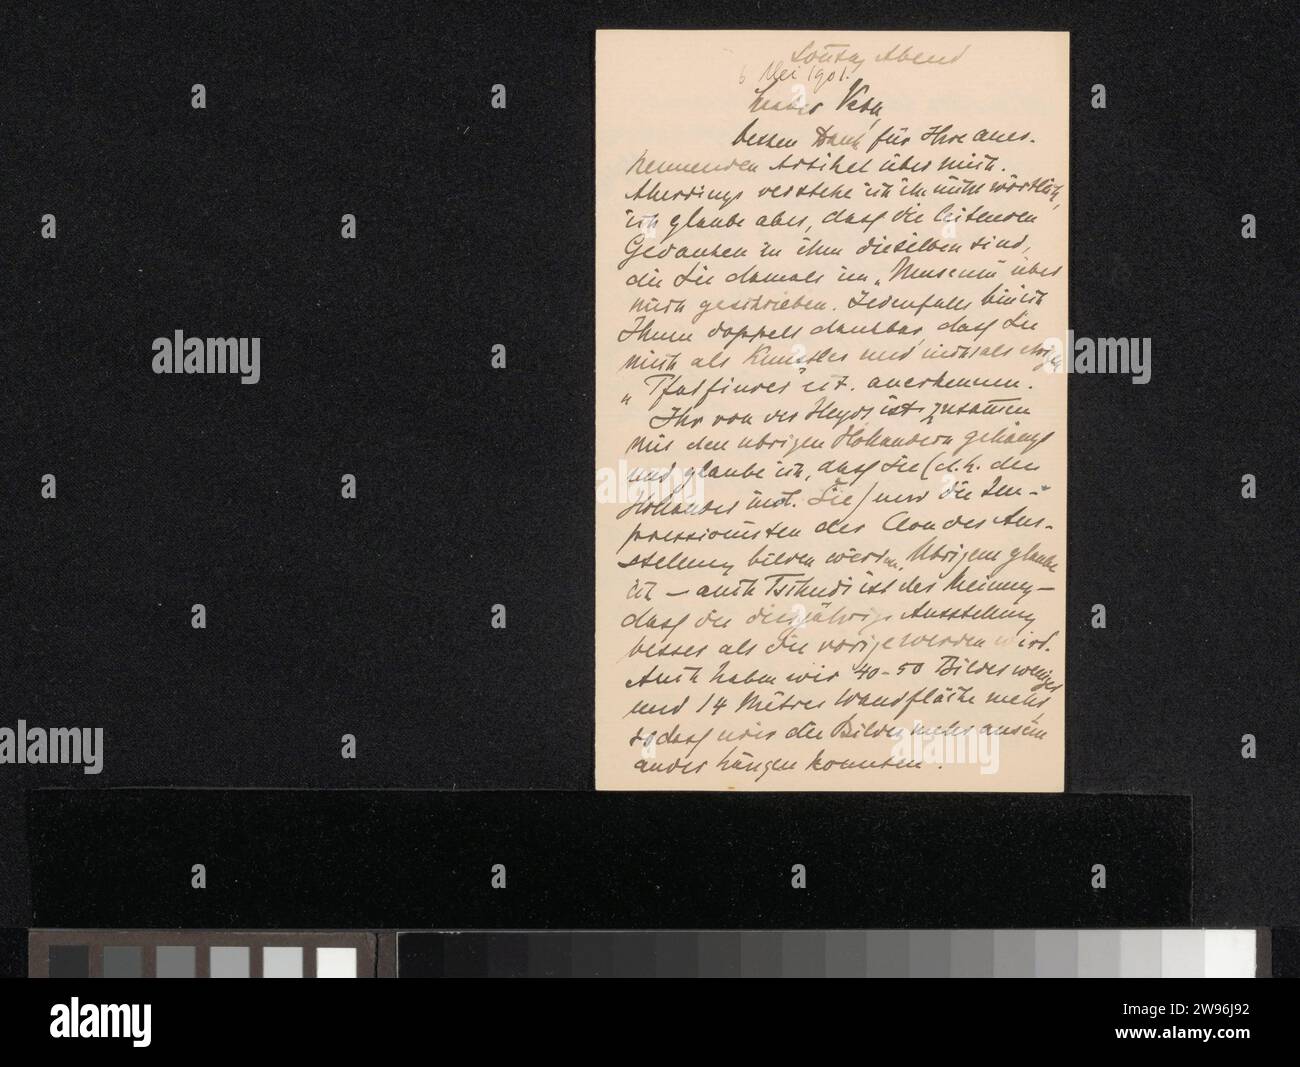 Sontag Abend
6 Mei 1901.
Lieber Veth,
besten Dank für Ihre aner-
kennenden Artikel über mich.
Allerdings verstehe ich ihn nicht wörtlich,
ich glaube aber, dass die leitenden
Gedanken in ihm dieselben sind,
die Sie damals im „Museum" über
mich geschrieben. Jedenfalls bin ich
Ihnen doppelt dankbar, dass Sie
mich als Künstler und nicht als
„Pfadfinder" etc. anerkennen.
Ihr von der Heydt ist zusammen
mit den übrigen Holländern gehängt
und glaube ich, dass Sie (d.h. die
Holländer incl. Sie) und die Im-
pressionisten der Clou der Aus-
stellung bilden werden. Übrigens glaube
ich – auch Tschudi ist der Meinung –
dass die diesjährige Ausstellung
besser als die vorige werden wird.
Auch haben wir 40-50 Bilder weniger
und 14 Meter Wandfläche mehr,
sodass wir die Bilder mehr ausein
ander hängen konnten.
alamy
alamy
alamy
alamy
alamy
a
a
a
a
a
a
a
a
a
a
a
a
a
a
a
alamy
Image ID: 2W96J92
www.alamy.com